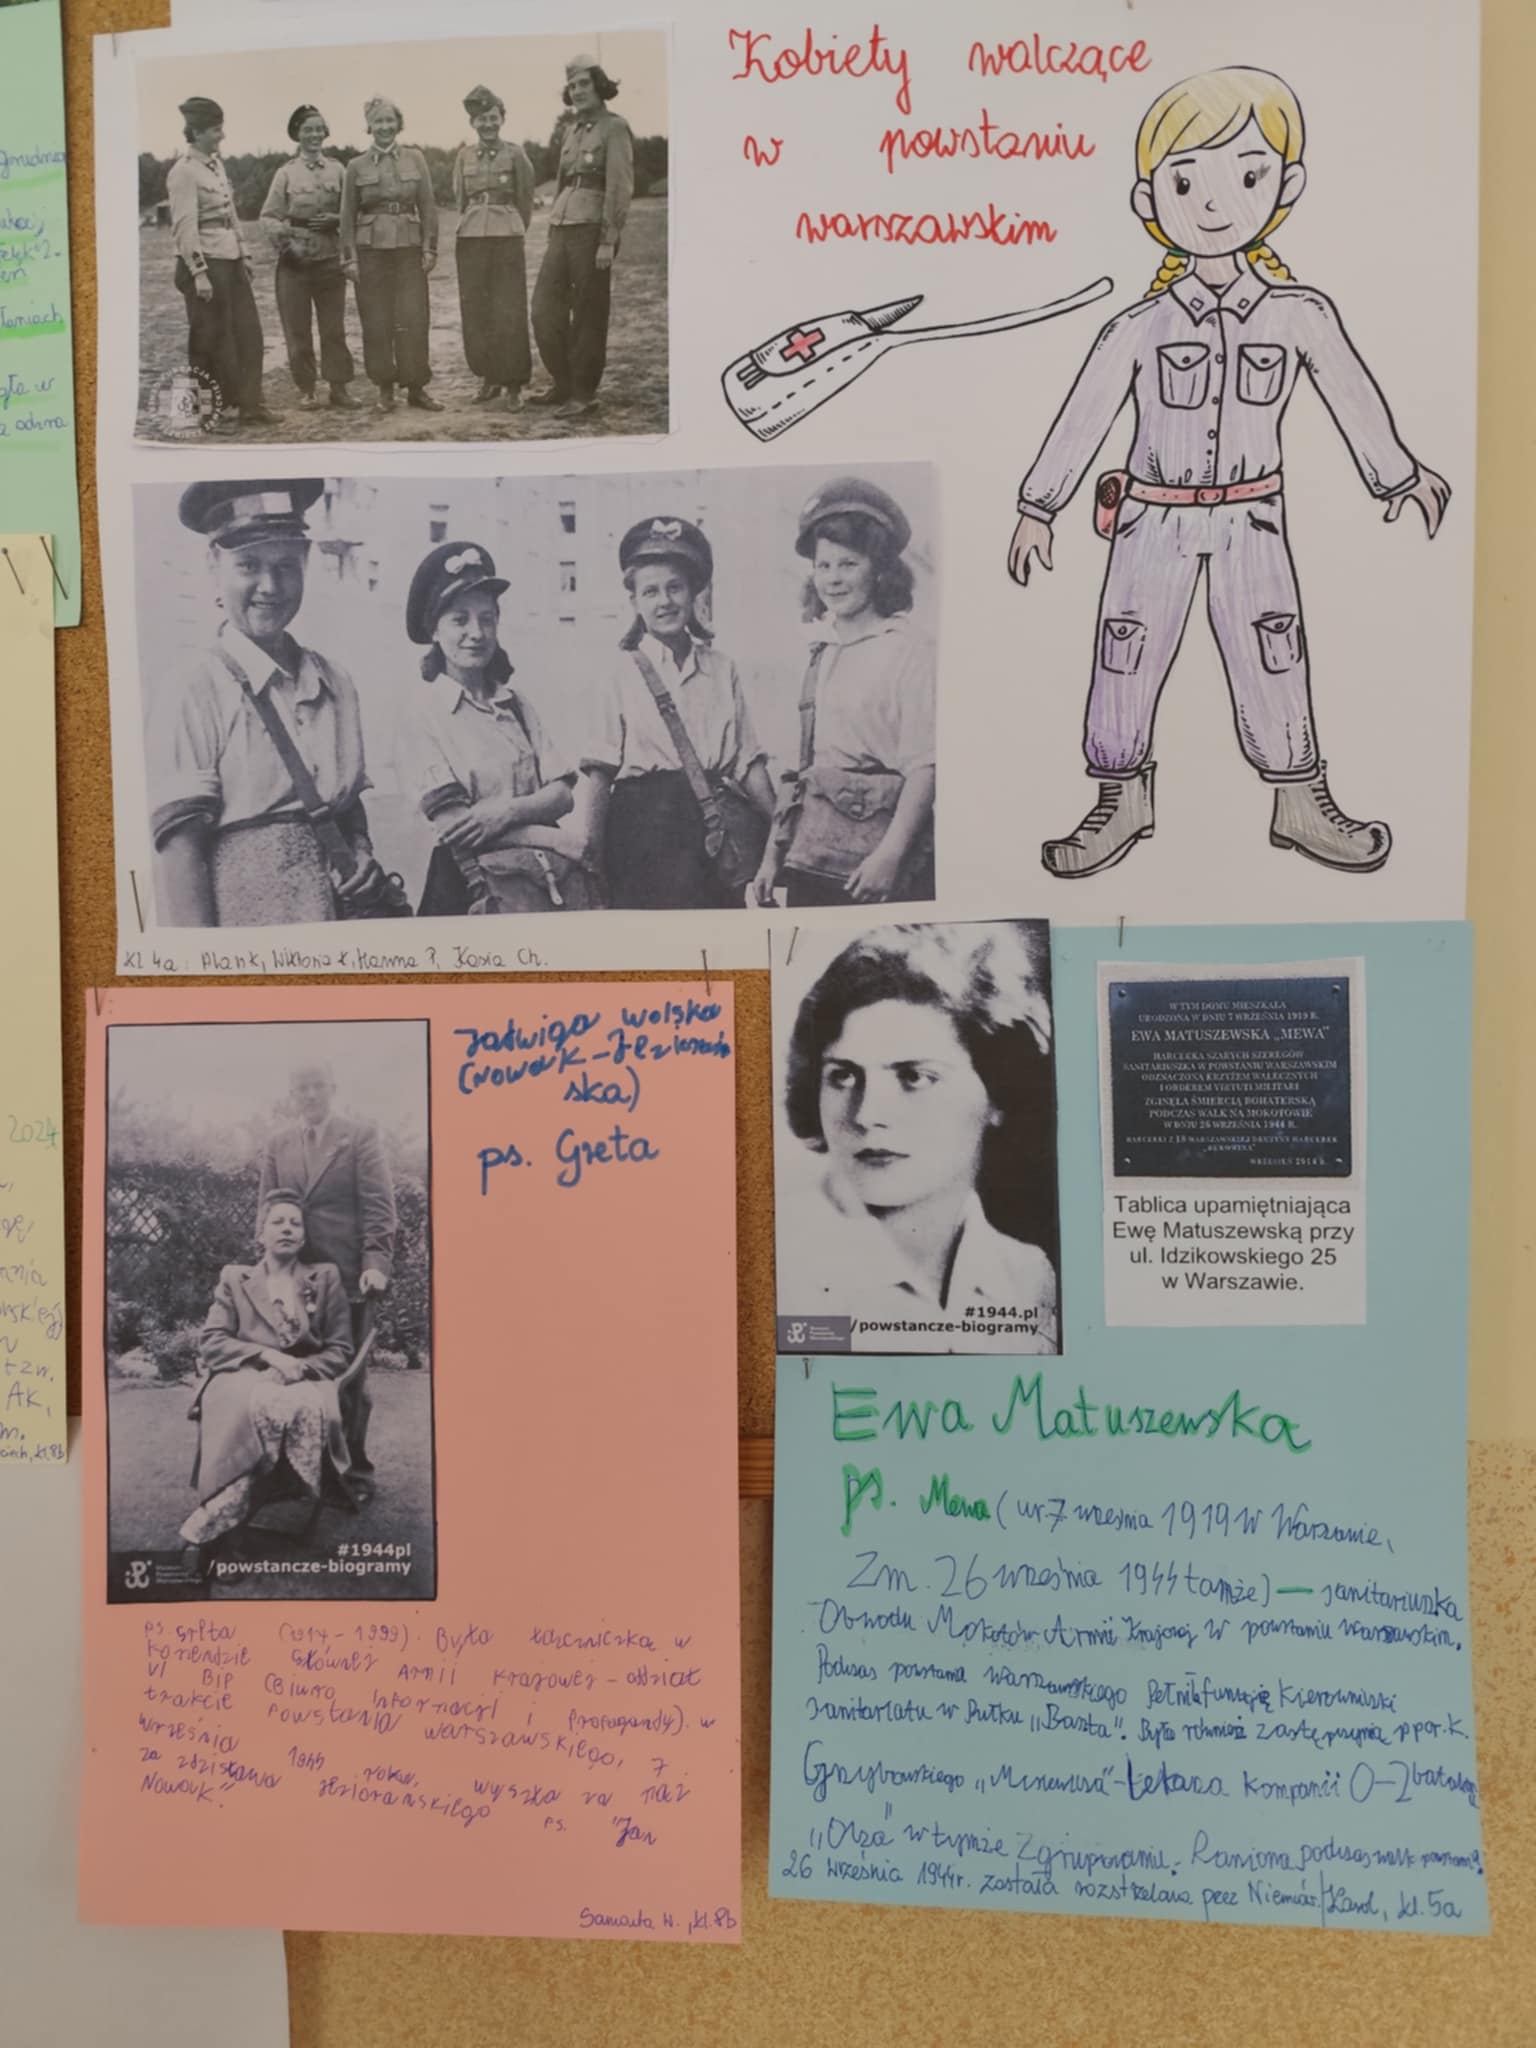 Kobiety walczące
w powstaniu
warszawskim
kl 4a: Alan K, Wiktoria Ł, Hanna P, Kasia Ch.
Jadwiga Wolska
(Nowak-Jeziorań
ska)
ps. Greta
#1944pl
/powstancze-biogramy
ps. Greta (1914-1999). Była łączniczką w
Komendzie Głównej Armii Krajowej - oddział
VI BIP (Biuro Informacji i Propagandy). w
trakcie Powstania warszawskiego, 7
września 1944 roku, wyszła za mąż
za zdzisława Jeziorańskiego ps. "Jan
Nowak".
Samanta W., kl. 8b
#1944.pl
/powstancze-biogramy
W TYM DOMU MIESZKAŁA
URODZONA W DNIU 7 WRZEŚNIA 1919 R.
EWA MATUSZEWSKA „MEWA"
HARCERKA SZARYCH SZEREGÓW
SANITARIUSZKA W POWSTANIU WARSZAWSKIM
ODZNACZONA KRZYŻEM WALECZNYCH
I ORDEREM VIRTUTI MILITARI
ZGINĘŁA ŚMIERCIĄ BOHATERSKĄ
PODCZAS WALK NA MOKOTOWIE
W DNIU 26 WRZEŚNIA 1944 R.
HARCERKI Z 18 WARSZAWSKIEJ DRUŻYNY HARCEREK
WRZESIEŃ 2014 R.
Tablica upamiętniająca
Ewę Matuszewską przy
ul. Idzikowskiego 25
w Warszawie.
Ewa Matuszewska
ps. Mewa (ur. 7 września 1919 w Warszawie,
Zm. 26 września 1944 tamże) — sanitariuszka
Obwodu Mokotów Armii Krajowej w powstaniu warszawskim.
Podczas powstania warszawskiego Pełniła funkcję Kierowniczki
sanitariatu w Pułku „Baszta". Była również zastępczynią ppor. K.
Grzybowskiego „Misiewicza" - Lekarza kompanii O-2 batalionu
„Olza" w tymże Zgrupowaniu. Raniona podczas walk
26 września 1944r. została rozstrzelana przez Niemców. Karol, kl. 5a
2024
AK,
kl. 8b